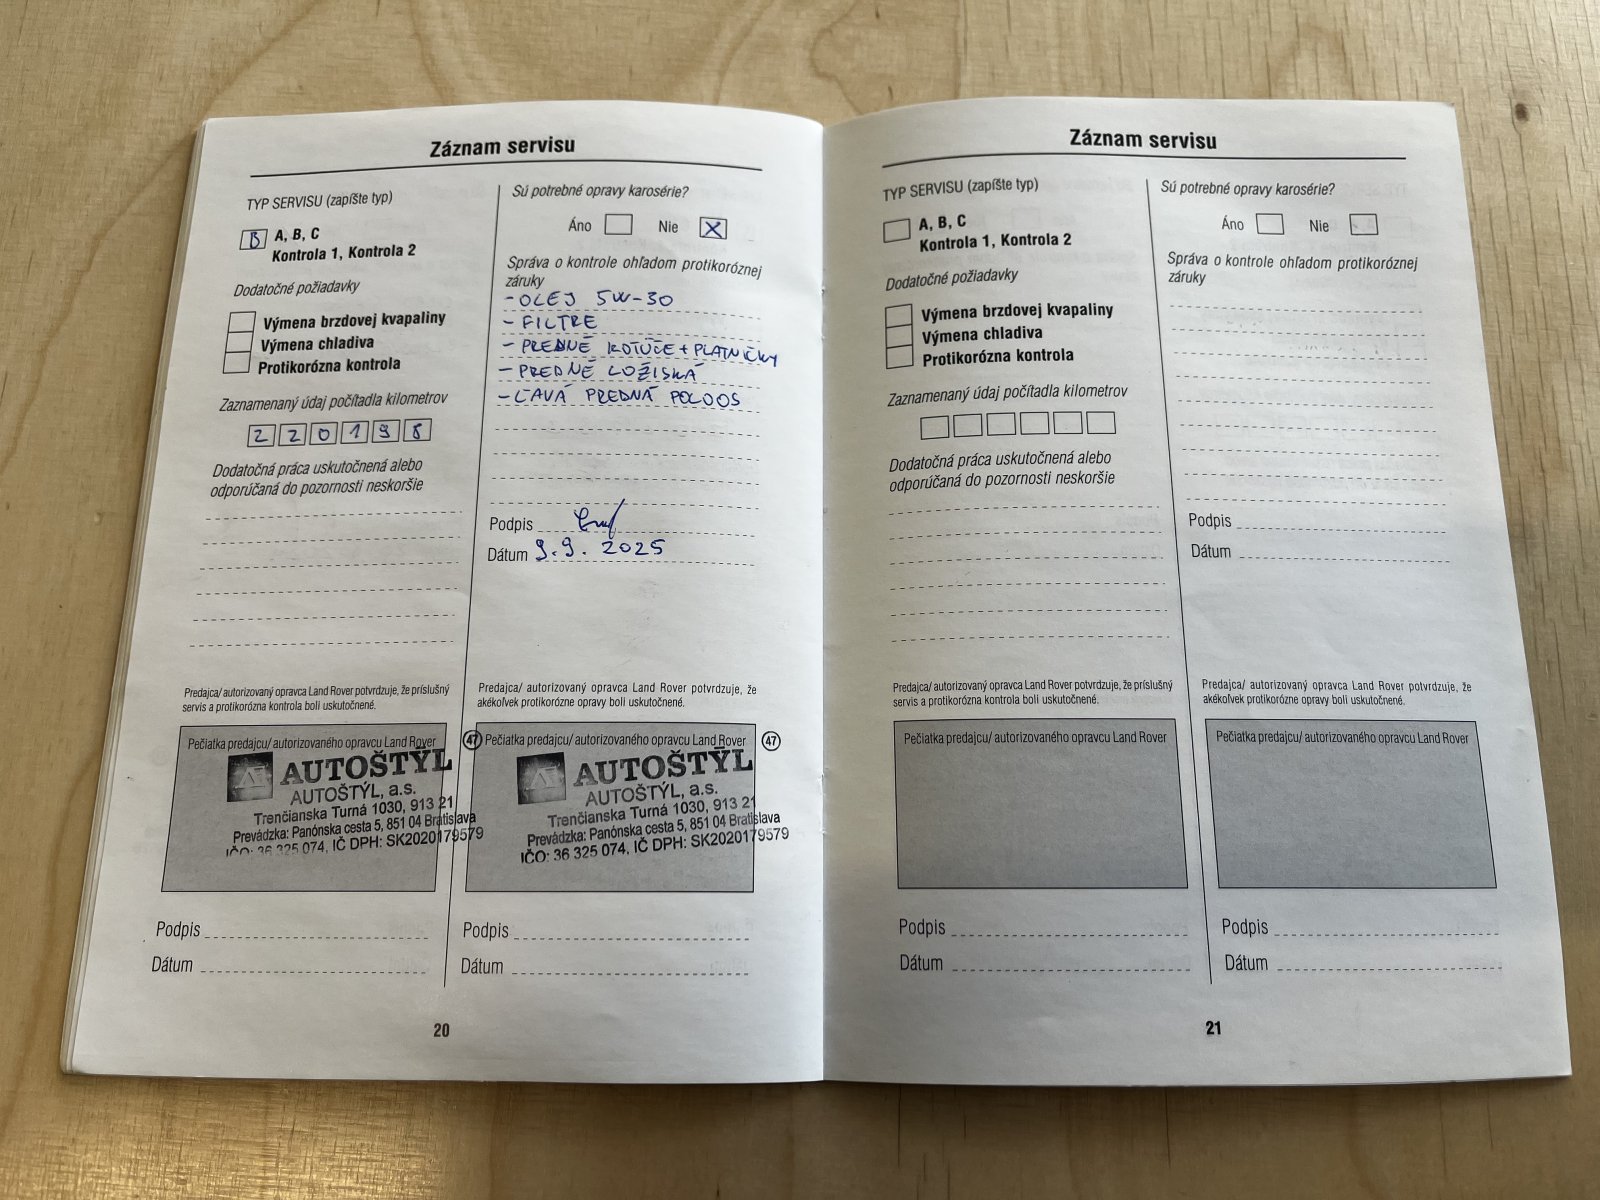 Záznam servisu
TYP SERVISU (zapíšte typ)
B A, B, C
Kontrola 1, Kontrola 2
Dodatočné požiadavky
Výmena brzdovej kvapaliny
Výmena chladiva
Protikorózna kontrola
Zaznamenaný údaj počítadla kilometrov
220198
Dodatočná práca uskutočnená alebo
odporúčaná do pozornosti neskoršie
Predajca/ autorizovaný opravca Land Rover potvrdzuje, že príslušný
servis a protikorózna kontrola boli uskutočnené.
Pečiatka predajcu/ autorizovaného opravcu Land Rover
47
AUTOŠTÝL
AUTOŠTÝL, a.s.
Trenčianska Turná 1030, 913 21
Prevádzka: Panónska cesta 5, 851 04 Bratislava
IČO: 36 325 074, IČ DPH: SK2020179579
Podpis
Dátum
Sú potrebné opravy karosérie?
Áno Nie X
Správa o kontrole ohľadom protikoróznej
záruky
- OLEJ 5W-30
- FILTRE
- PREDNÉ KOTÚČE + PLATNIČKY
- PREDNÉ LOŽISKÁ
- ĽAVÁ PREDNÁ POLOOS
Podpis
Dátum 9.9.2025
Predajca/ autorizovaný opravca Land Rover potvrdzuje, že
akékoľvek protikorózne opravy boli uskutočnené.
Pečiatka predajcu/ autorizovaného opravcu Land Rover
47
AUTOŠTÝL
AUTOŠTÝL, a.s.
Trenčianska Turná 1030, 913 21
Prevádzka: Panónska cesta 5, 851 04 Bratislava
IČO: 36 325 074, IČ DPH: SK2020179579
Podpis
Dátum
20
Záznam servisu
TYP SERVISU (zapíšte typ)
A, B, C
Kontrola 1, Kontrola 2
Dodatočné požiadavky
Výmena brzdovej kvapaliny
Výmena chladiva
Protikorózna kontrola
Zaznamenaný údaj počítadla kilometrov
Dodatočná práca uskutočnená alebo
odporúčaná do pozornosti neskoršie
Predajca/ autorizovaný opravca Land Rover potvrdzuje, že príslušný
servis a protikorózna kontrola boli uskutočnené.
Pečiatka predajcu/ autorizovaného opravcu Land Rover
Podpis
Dátum
Sú potrebné opravy karosérie?
Áno Nie
Správa o kontrole ohľadom protikoróznej
záruky
Podpis
Dátum
Predajca/ autorizovaný opravca Land Rover potvrdzuje, že
akékoľvek protikorózne opravy boli uskutočnené.
Pečiatka predajcu/ autorizovaného opravcu Land Rover
Podpis
Dátum
21